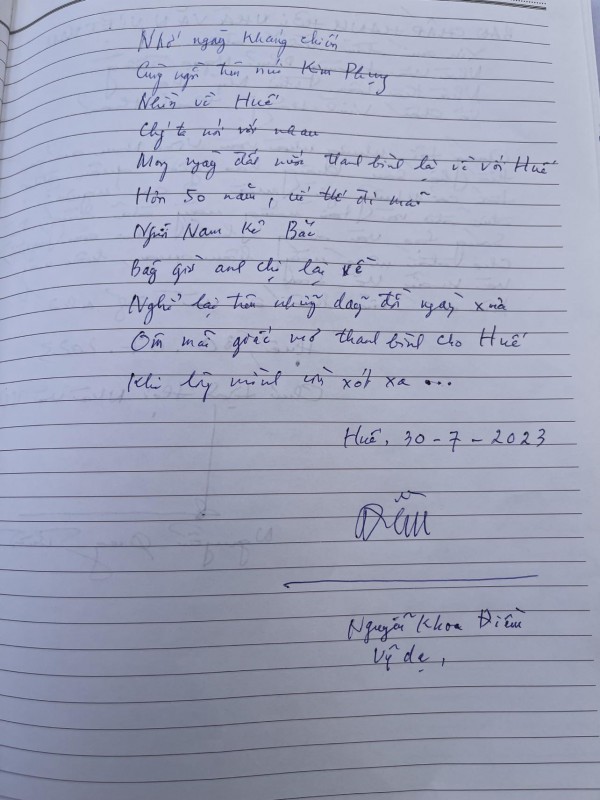 Nhớ ngày kháng chiến
Cùng ngồi trên núi Kim Phụng
Nhìn về Huế
Chị ta nói với nhau
Mong ngày đất nước thanh bình là về với Huế
Hơn 50 năm, cứ thế đi mãi
Người Nam kẻ Bắc
Bây giờ anh chị lại về
Nghỉ lại trên những dãy đồi ngày xưa
Ôm mãi giấc mơ thanh bình cho Huế
Khi lòng mình còn xót xa ...
Huế, 30-7-2023
Điềm
Nguyễn Khoa Điềm
Vỹ dạ,